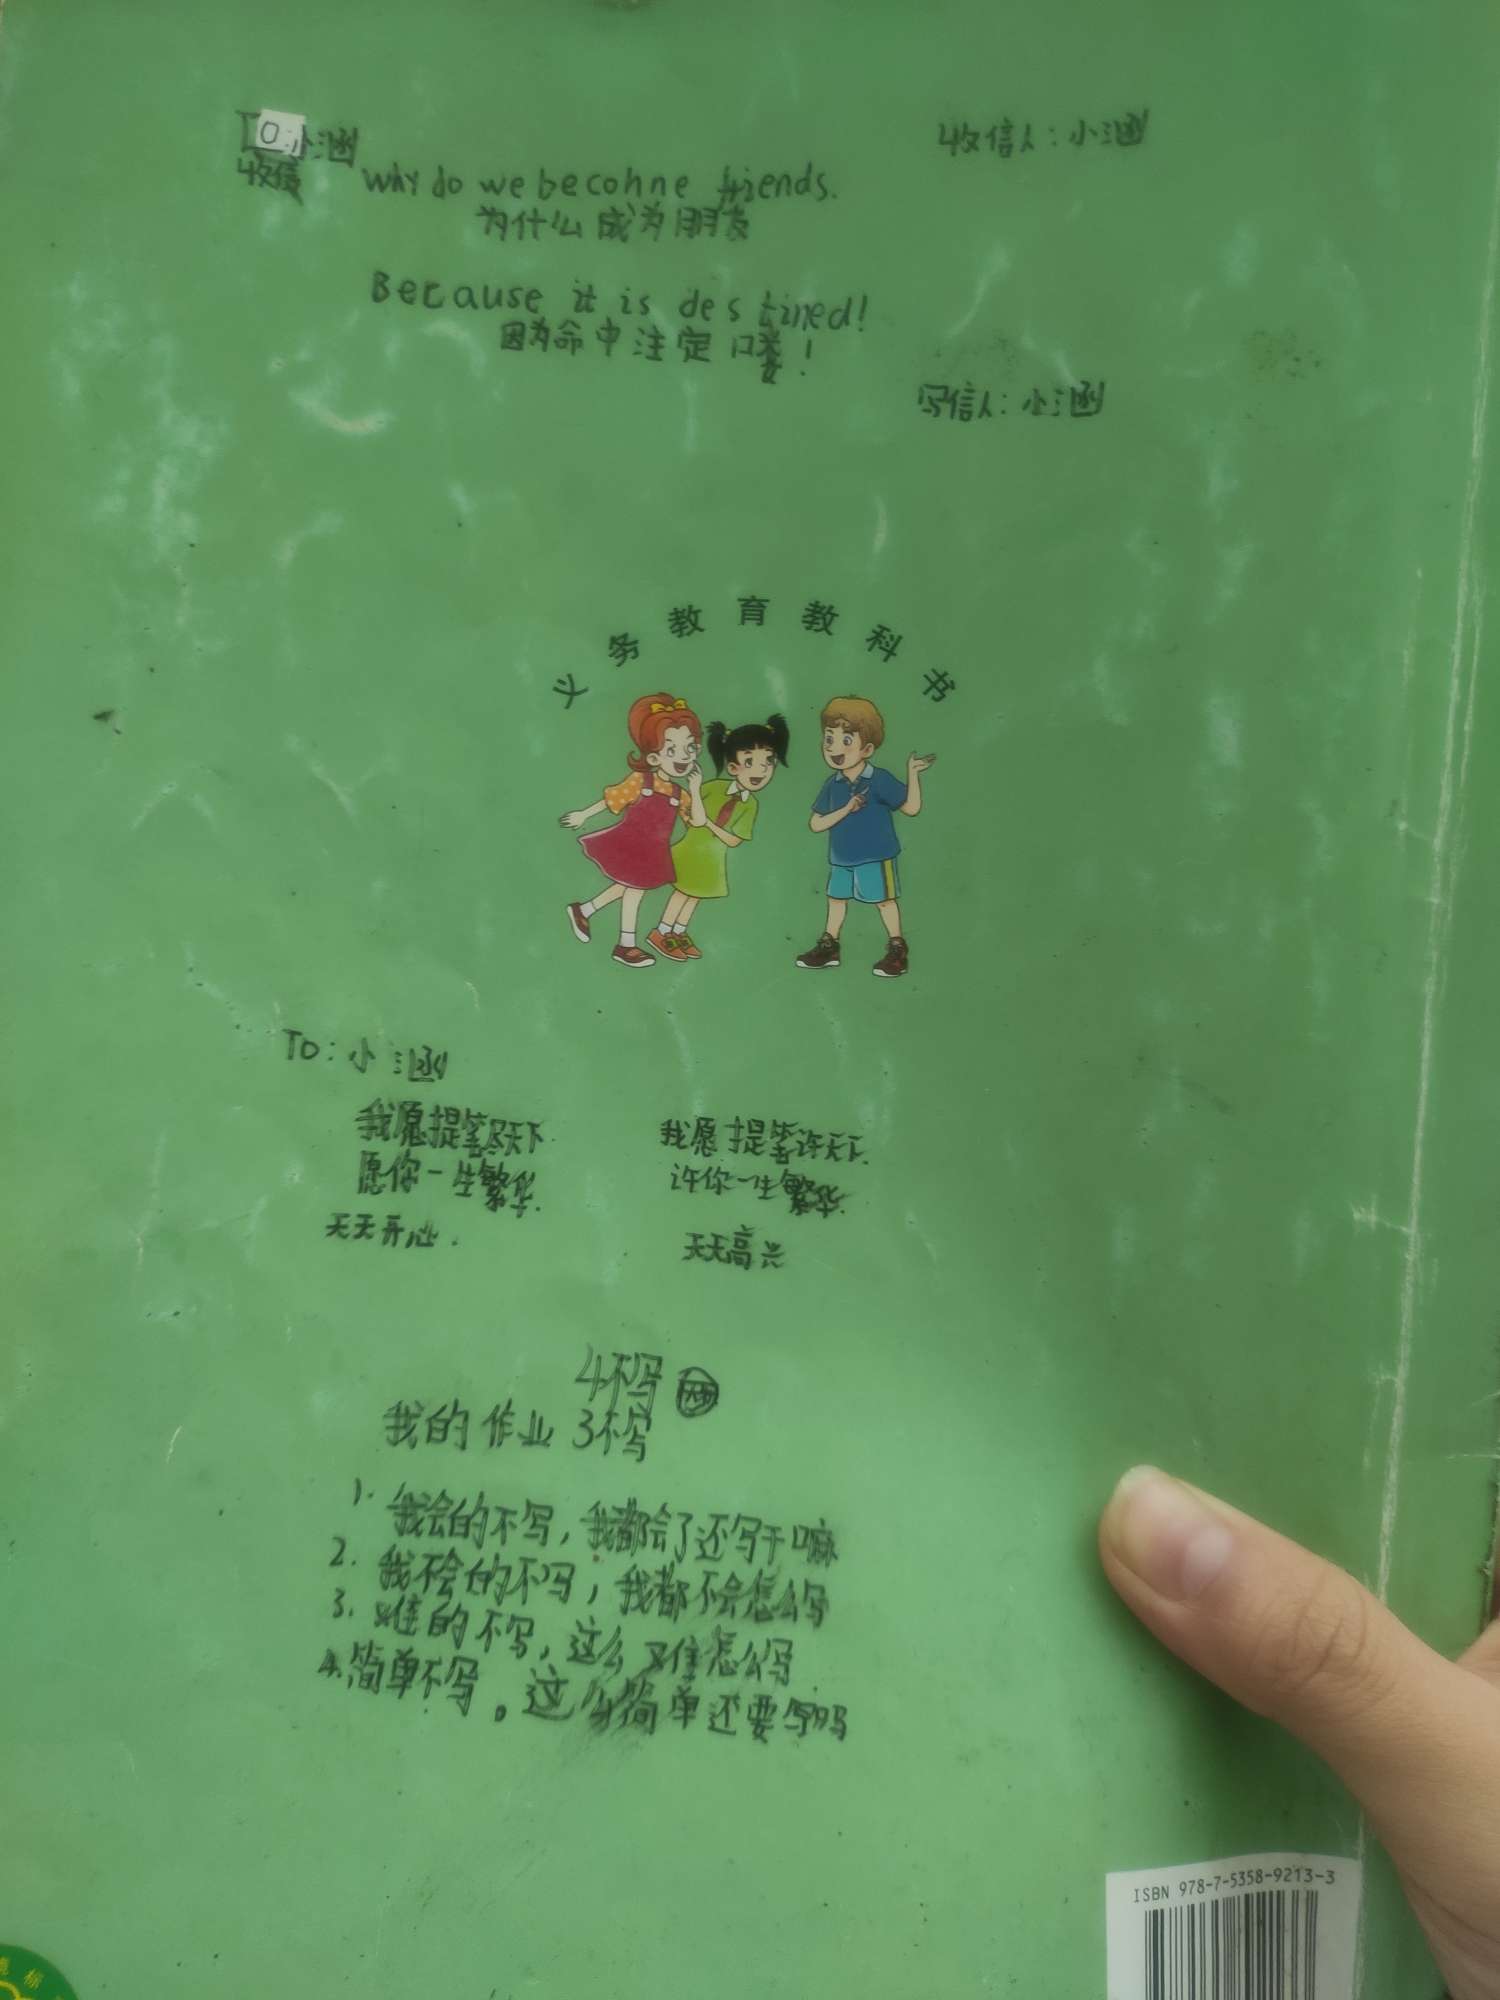 TO:小涵
收信人:小涵
收信
why do we becohne friends.
为什么成为朋友
Because it is destined!
因为命中注定喽!
写信人:小涵
义务教育教科书
TO:小涵
我愿提笔尽天下
愿你一生繁华.
天天开心.
我愿提笔许天下.
许你一生繁华.
天天高兴
4不写
我的作业 3不写
1. 我会的不写,我都会了还写干嘛
2. 我不会的不写,我都不会怎么写
3. 难的不写,这么难怎么写
4.简单不写。这么简单还要写吗
ISBN 978-7-5358-9213-3